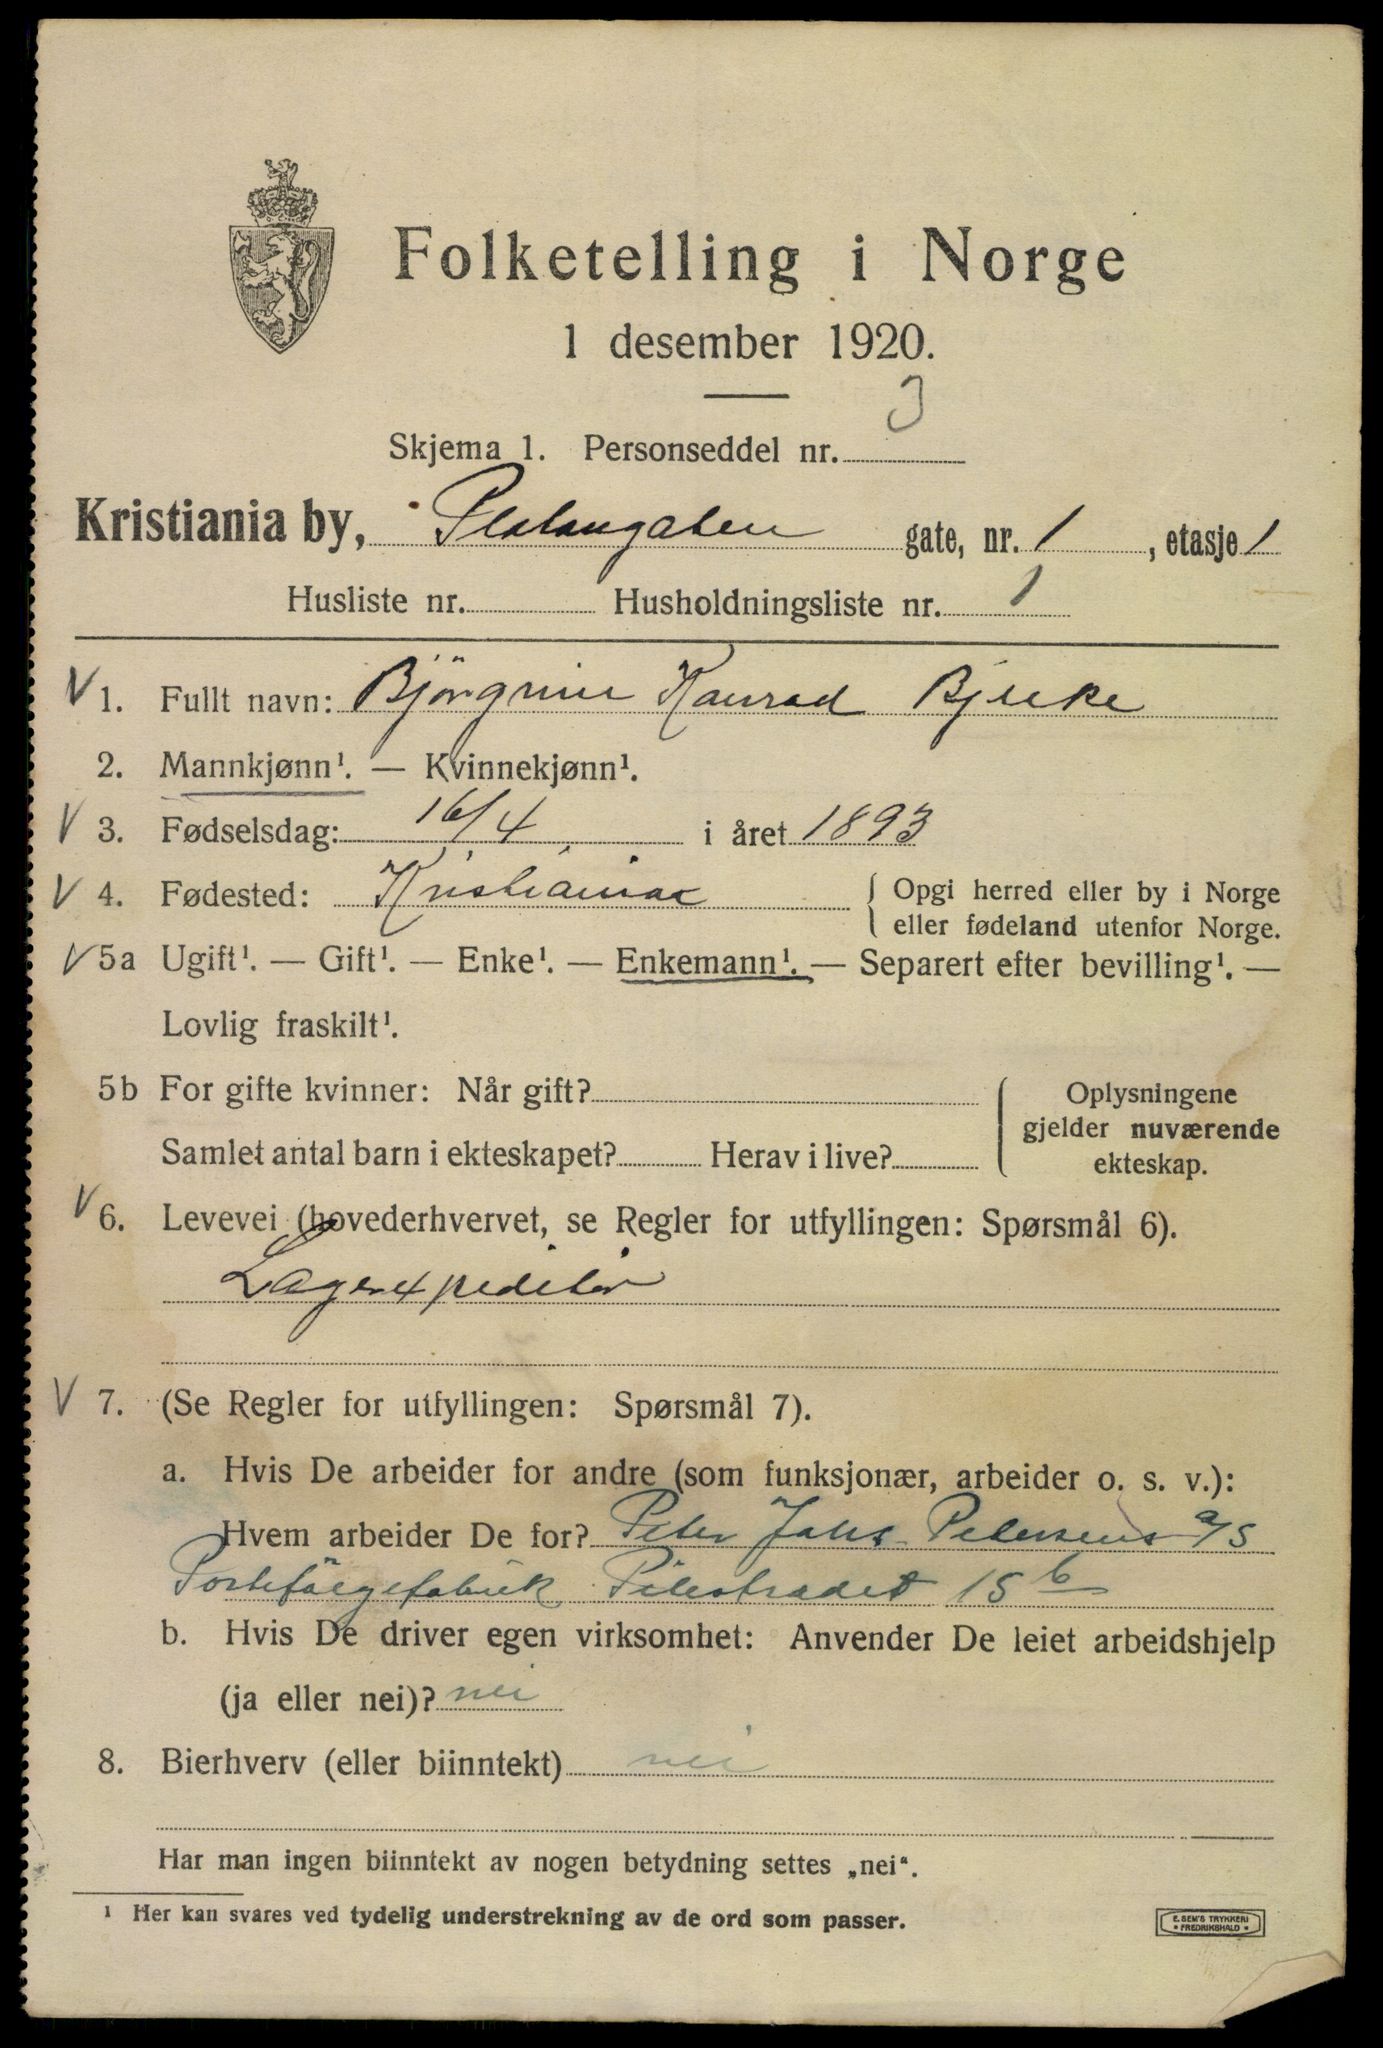 Folketelling i Norge
1 desember 1920.
Skjema 1. Personseddel nr. 3
Kristiania by, Platangaten gate, nr. 1, etasje 1
Husliste nr. Husholdningsliste nr. 1
V 1. Fullt navn: Björgvin Konrad Bjerke
2. Mannkjønn¹. — Kvinnekjønn¹.
V 3. Fødselsdag: 16/4 i året 1893
V 4. Fødested: Kristiania { Opgi herred eller by i Norge
eller fødeland utenfor Norge.
V 5a Ugift¹. — Gift¹. — Enke¹. — Enkemann¹. — Separert efter bevilling¹. —
Lovlig fraskilt¹.
5b For gifte kvinner: Når gift?
Samlet antal barn i ekteskapet? Herav i live?
Oplysningene
gjelder nuværende
ekteskap.
V 6. Levevei (hovederhvervet, se Regler for utfyllingen: Spørsmål 6).
Lagerexpeditör
V 7. (Se Regler for utfyllingen: Spørsmål 7).
a. Hvis De arbeider for andre (som funksjonær, arbeider o. s. v.):
Hvem arbeider De for? Peter Johs Petersens a/s
Portefölgefabrik Pilestrædet 15 b
b. Hvis De driver egen virksomhet: Anvender De leiet arbeidshjelp
(ja eller nei)? nei
8. Bierhverv (eller biinntekt) nei
Har man ingen biinntekt av nogen betydning settes „nei“.
¹ Her kan svares ved tydelig understrekning av de ord som passer.
E. SEM'S TRYKKERI
* FREDRIKSHALD *